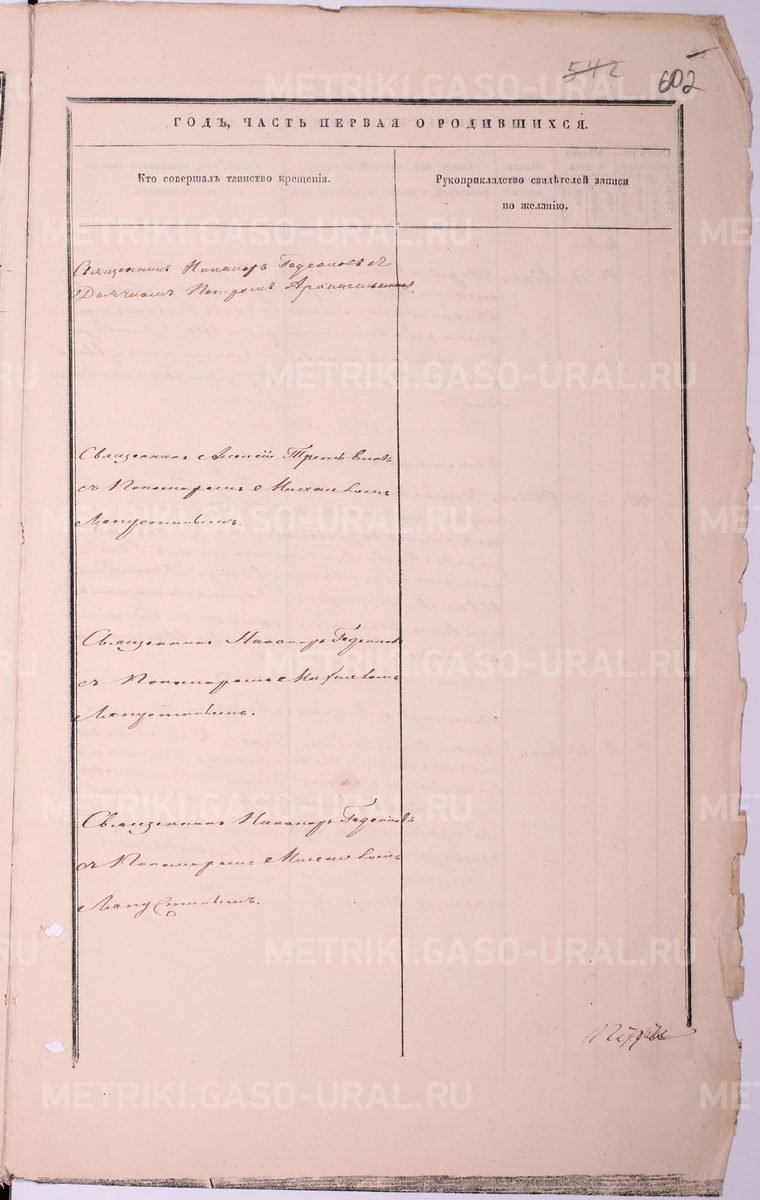 542
602
ГОДЪ, ЧАСТЬ ПЕРВАЯ О РОДИВШИХСЯ.
Кто совершалъ таинство крещенія.
Рукоприкладство свидѣтелей записи
по желанію.
Священникъ Никаноръ Гедеоновъ съ
Дьячкомъ Петромъ
Священникъ Алексій
съ Пономаремъ Михаиломъ
Лапустинымъ.
Священникъ Никаноръ Гедеоновъ
съ Пономаремъ Михаиломъ
Лапустинымъ.
Священникъ Никаноръ Гедеоновъ
съ Пономаремъ Михаиломъ
Лапустинымъ.
METRIKI.GASO-URAL.RU